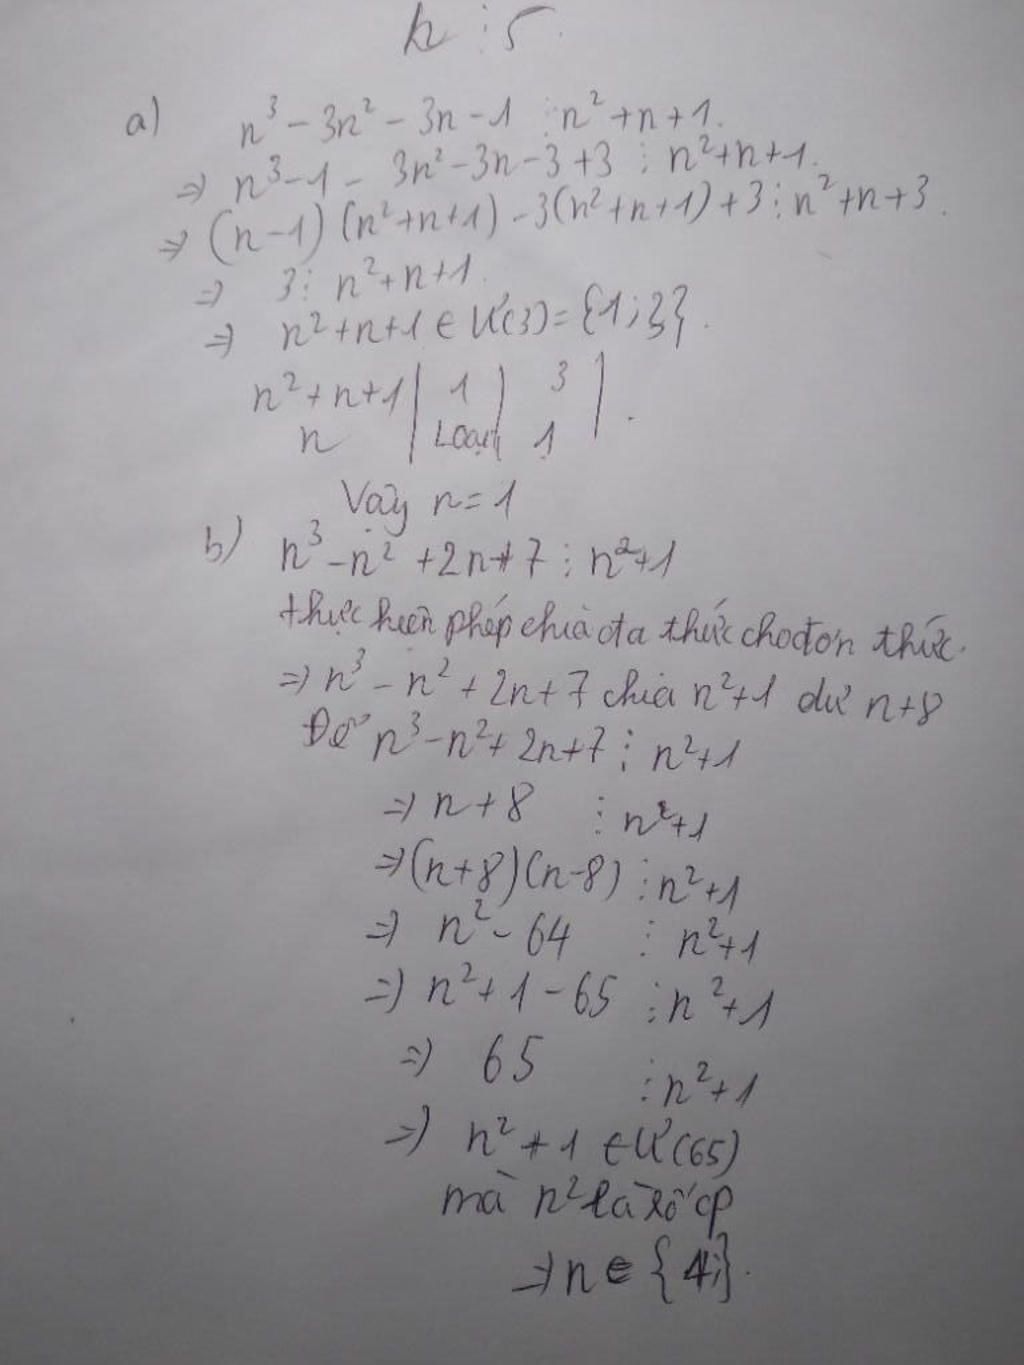 n ⋮ 5.
a) n³ - 3n² - 3n - 1 ⋮ n² + n + 1.
⇒ n³ - 1 - 3n² - 3n - 3 + 3 ⋮ n² + n + 1.
⇒ (n-1)(n²+n+1) - 3(n²+n+1) + 3 ⋮ n² + n + 3.
⇒ 3 ⋮ n² + n + 1.
⇒ n² + n + 1 ∈ Ư(3) = {1; 3}.
n² + n + 1 | 1 | 3 |
n | Loại | 1 | .
Vậy n = 1
b) n³ - n² + 2n + 7 ⋮ n² + 1
thực hiện phép chia đa thức cho đơn thức.
⇒ n³ - n² + 2n + 7 chia n² + 1 dư n + 8
Để n³ - n² + 2n + 7 ⋮ n² + 1
⇒ n + 8 ⋮ n² + 1
⇒ (n+8)(n-8) ⋮ n² + 1
⇒ n² - 64 ⋮ n² + 1
⇒ n² + 1 - 65 ⋮ n² + 1
⇒ 65 ⋮ n² + 1
⇒ n² + 1 ∈ Ư(65)
mà n² là số cp
⇒ n ∈ {4;}.